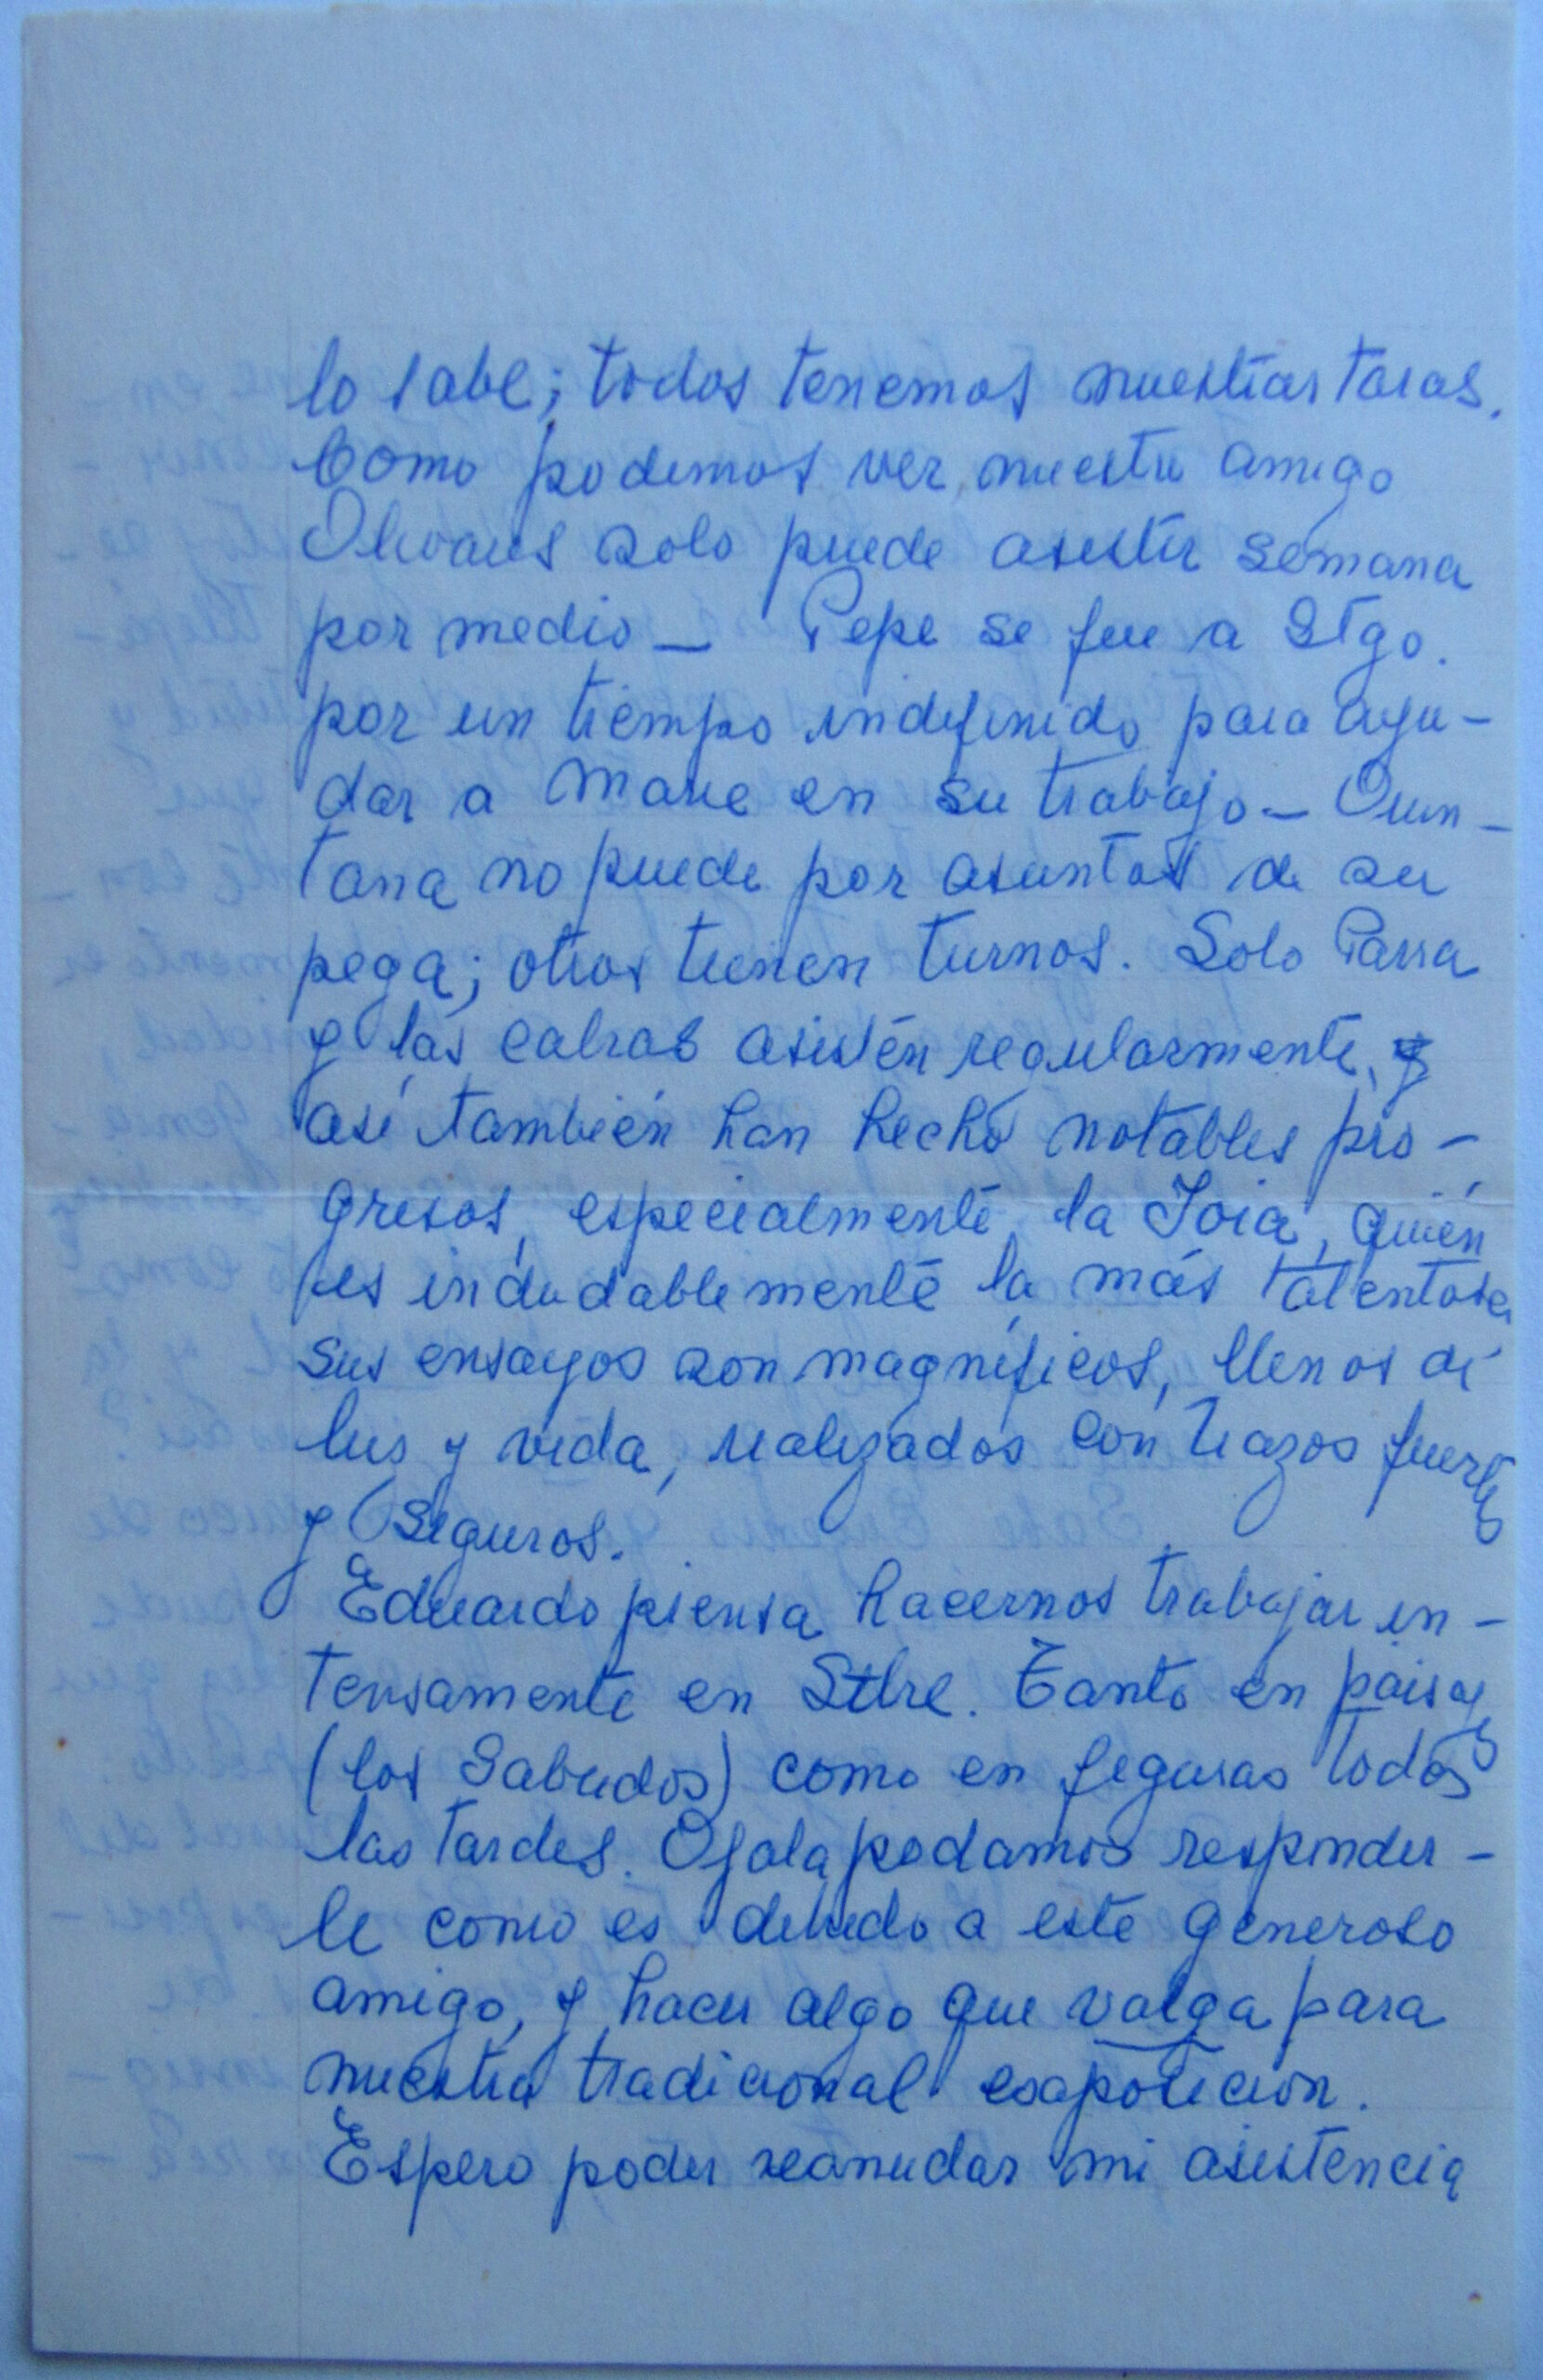 lo sabe; todos tenemos nuestras taras.
Como podemos ver, nuestro amigo
Olivares solo puede asistir semana
por medio — Pepe se fue a Stgo.
por un tiempo indefinido para ayu-
dar a Marie en su trabajo — Quin-
tana no puede por asuntos de su
pega; otros tienen turnos. Solo Parra
y las cabras asisten regularmente, y
así también han hecho notables pro-
gresos, especialmente, la Toia, quién
es indudablemente la más talentosa
sus ensayos son magníficos, llenos de
lus y vida, realizados con trazos fuertes
y seguros.
Eduardo piensa hacernos trabajar in-
tensamente en Stbre. Tanto en paisajes
(los Sabados) como en figuras todas
las tardes. Ojala podamos responder-
le como es debido a este generoso
amigo, y hacer algo que valga para
nuestra tradicional exposicion.
Espero poder reanudar mi asistencia